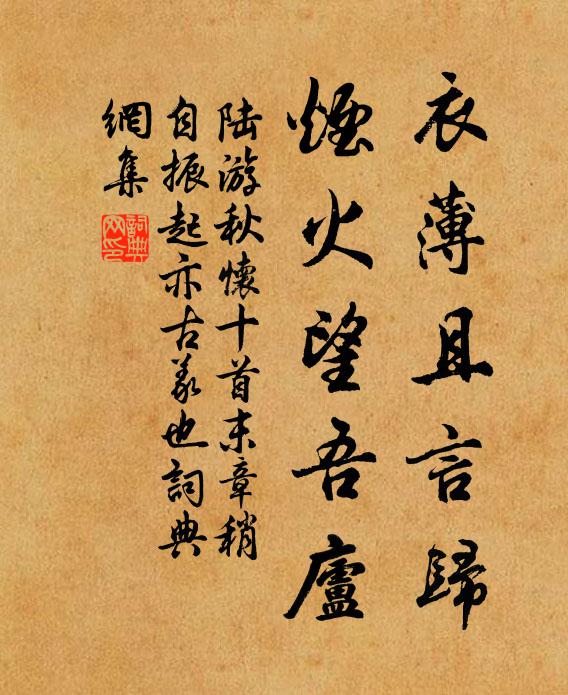 衣薄且言歸
煙火望吾廬
陸游秋懷十首末章稍
自振起亦古義也詞典
網集
詞典
网印